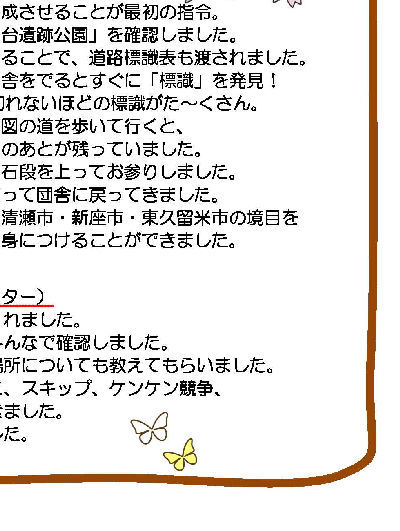 成させることが最初の指令。
台遺跡公園」を確認しました。
ることで、道路標識表も渡されました。
舎をでるとすぐに「標識」を発見！
れないほどの標識がた～くさん。
図の道を歩いて行くと、
のあとが残っていました。
石段を上ってお参りしました。
って団舎に戻ってきました。
清瀬市・新座市・東久留米市の境目を
身につけることができました。
ター）
れました。
んなで確認しました。
場所についても教えてもらいました。
、スキップ、ケンケン競争、
ました。
した。